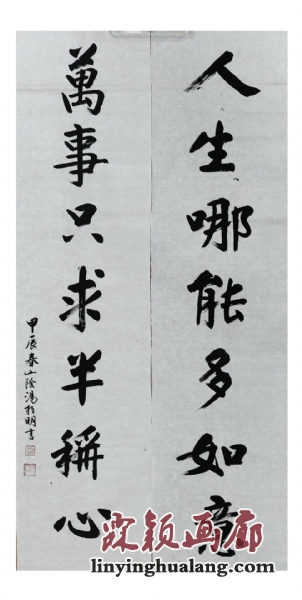 人生哪能多如意
萬事只求半稱心
甲辰春山陰湯於明書
霖颖画廊
www.linyinghualang.com